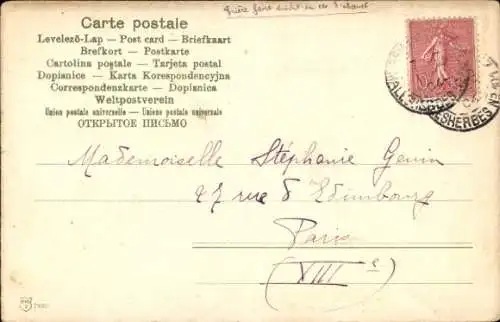 Carte postale
Levelező-Lap — Post card — Briefkaart
Brefkort — Postkarte
Cartolina postale — Tarjeta postal
Dopisnice — Karta Korespondencyjna
Correspondenzkarte — Dopisnica
Weltpostverein
Union postale universelle — Unione postale universale
ОТКРЫТОЕ ПИСЬМО
MALESHERBES
Mademoiselle Stéphanie Genin
27 rue d'Edimbourg
Paris
(VIII e)